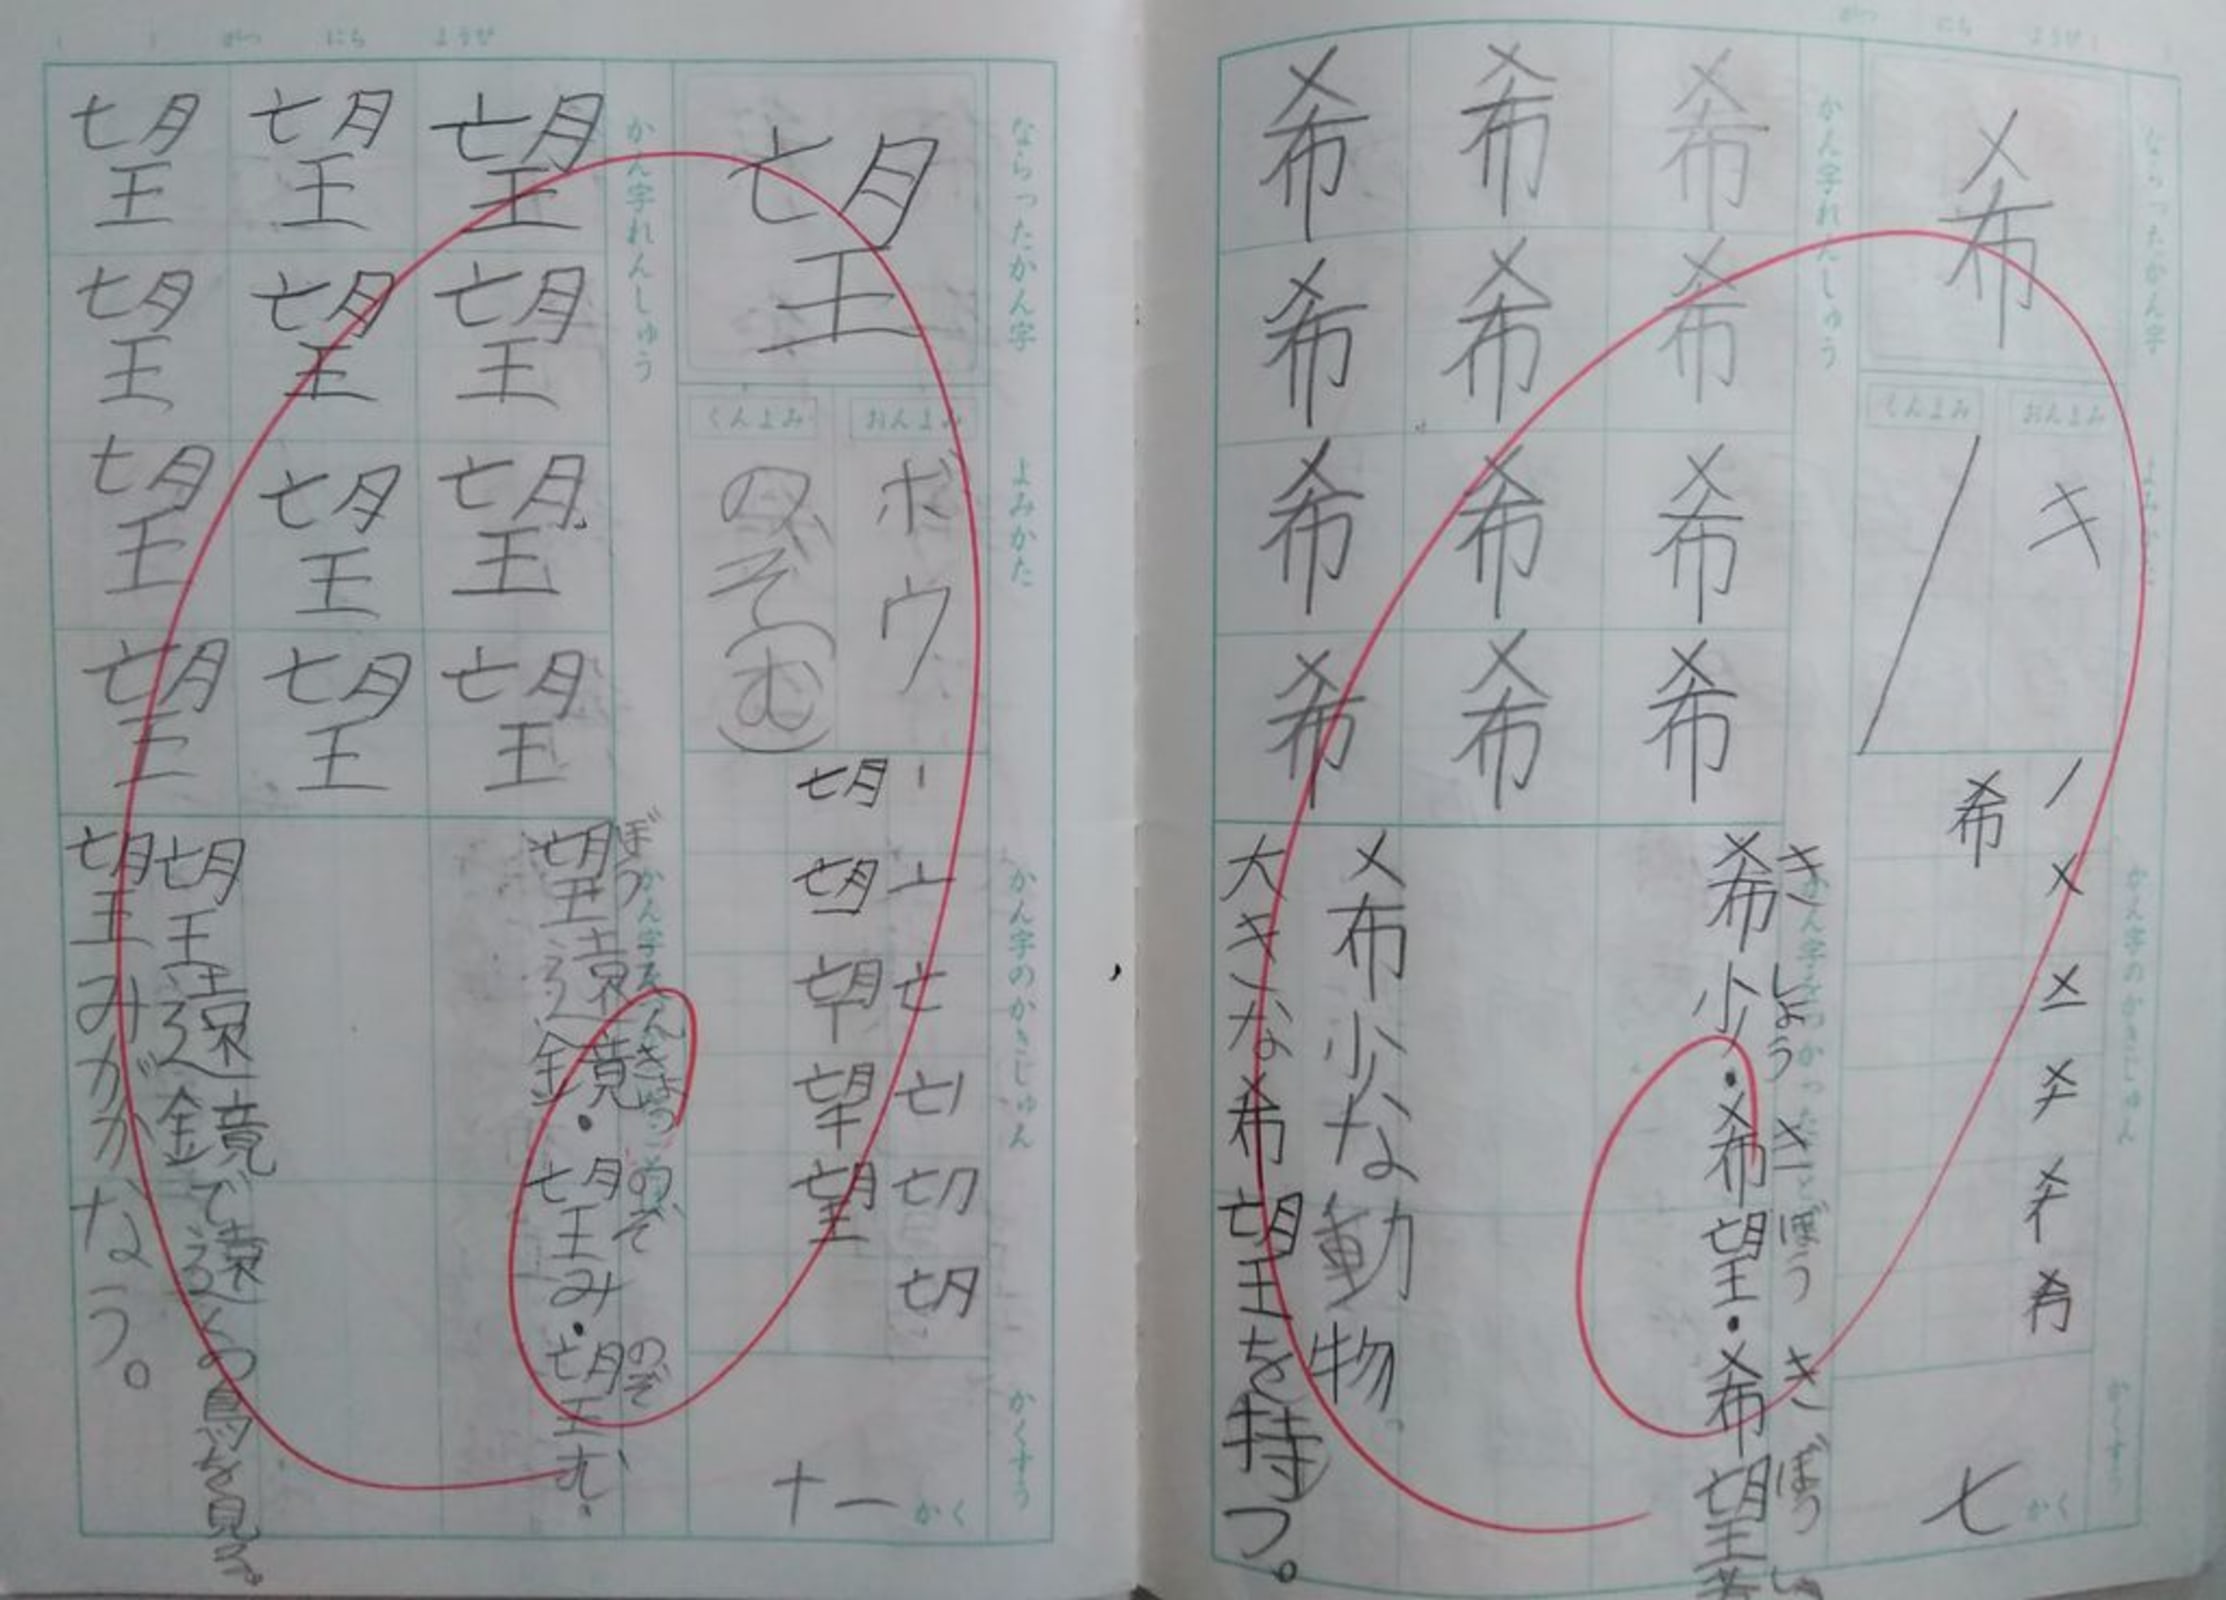 がつ にち ようび
ならったかん字
希
よみかた
おんよみ
キ
くんよみ
かん字のかきじゅん
希
かくすう
七かく
かん字れんしゅう
希 希 希 希
希 希 希 希
希 希 希 希
かん字をつかったことば
き しょう き ぼう き ぼう しゃ
希少・希望・希望者
希少な動物。
大きな希望を持つ。
がつ にち ようび
ならったかん字
望
よみかた
おんよみ
ボウ
くんよみ
のぞ(む)
かん字のかきじゅん
亡
望
かくすう
十一かく
かん字れんしゅう
望 望 望 望
望 望 望 望
望 望 望 望
ぼう えんきょう のぞ のぞ
望遠鏡・望み・望む・
望遠鏡で遠くの鳥を見る。
望みがかなう。